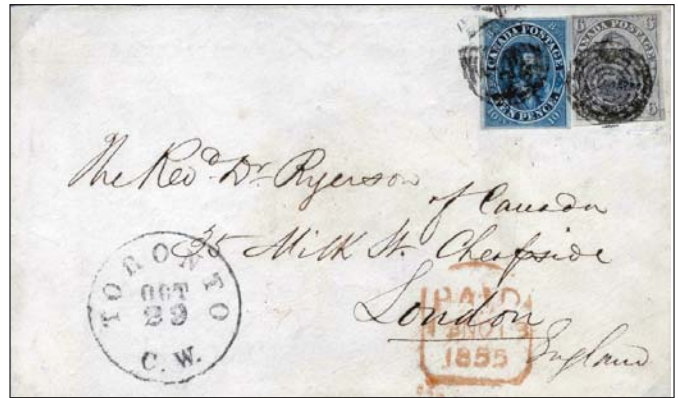 CANADA POSTAGE
TEN PENCE
6 CANADA POSTAGE 6
The Revd Dr Ryerson
of Canada
25 Milk St. Cheapside
London
England
TORONTO
OCT
29
C. W.
PAID
1855